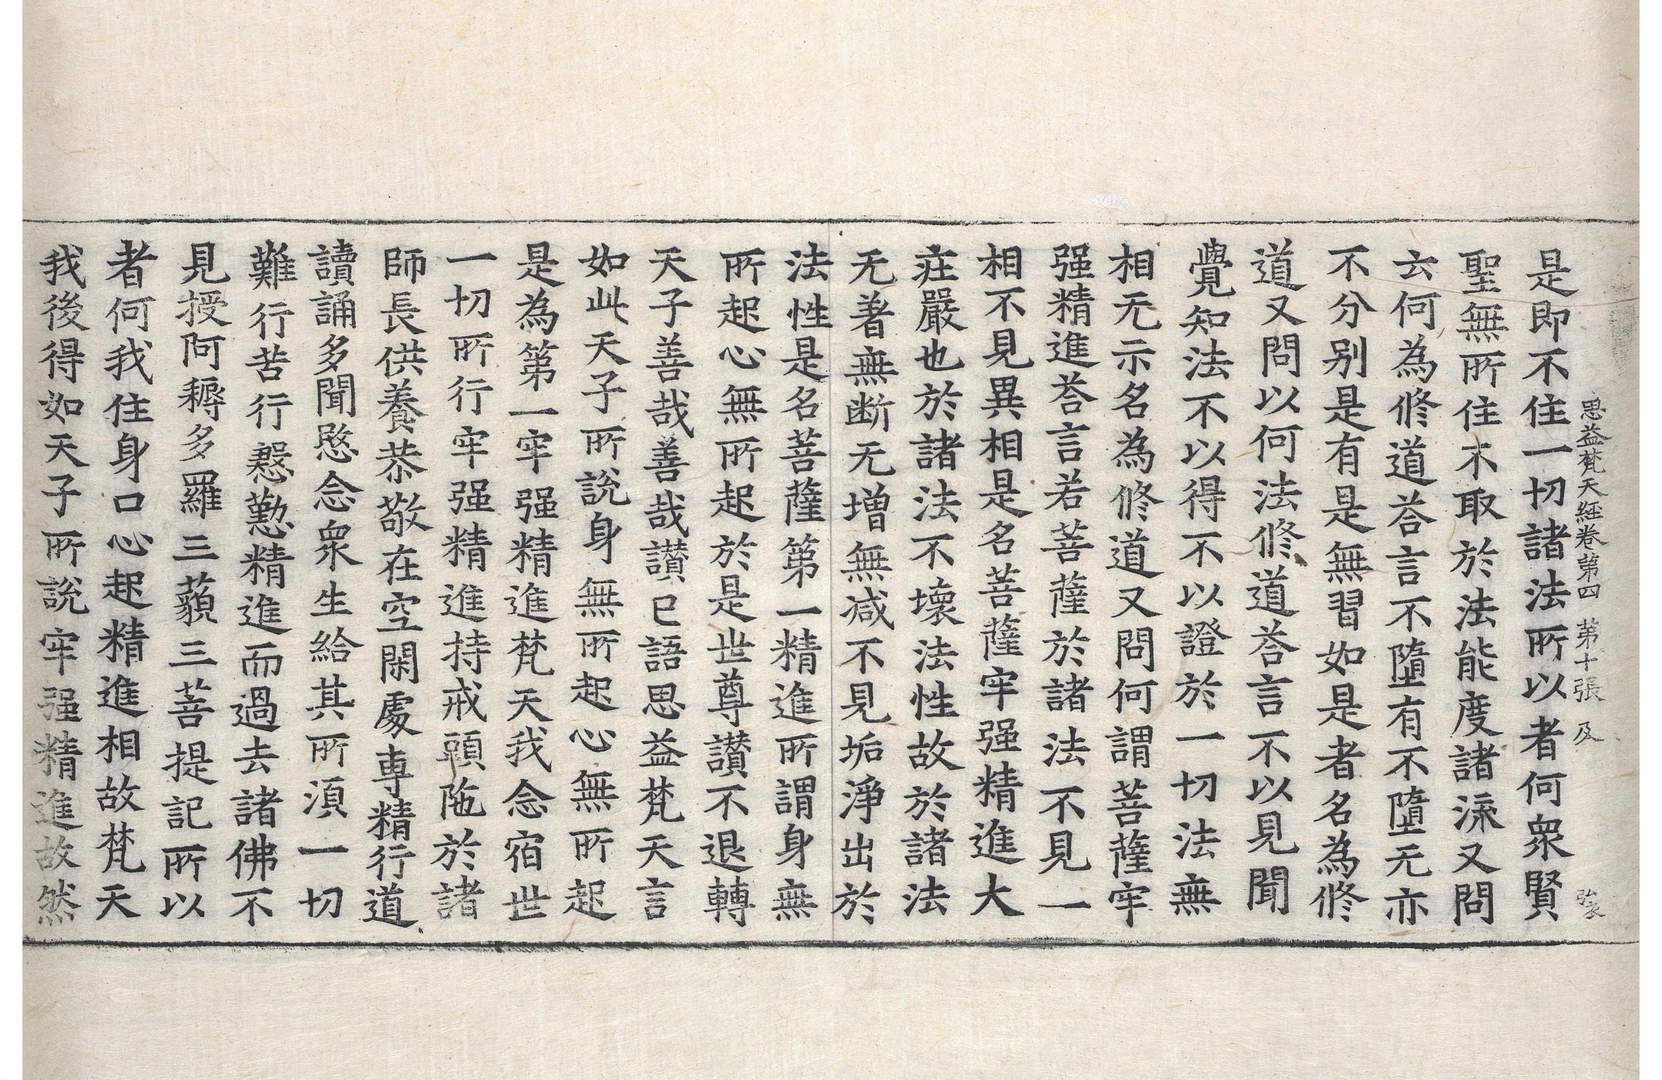 思益梵天經卷第四 第十張 及
是即不住一切諸法所以者何衆賢
聖無所住不取於法能度諸流又問
云何為修道荅言不墮有不墮无亦
不分别是有是無習如是者名為修
道又問以何法修道荅言不以見聞
覺知法不以得不以證於一切法無
相无示名為修道又問何謂菩薩牢
强精進荅言若菩薩於諸法不見一
相不見異相是名菩薩牢强精進大
莊嚴也於諸法不壞法性故於諸法
无著無断无增無減不見垢淨出於
法性是名菩薩第一精進所謂身無
所起心無所起於是世尊讃不退轉
天子善哉善哉讃已語思益梵天言
如此天子所說身無所起心無所起
是為第一牢强精進梵天我念宿世
一切所行牢强精進持戒頭陁於諸
師長供養恭敬在空閑處専精行道
讀誦多聞愍念衆生給其所湏一切
難行苦行慇懃精進而過去諸佛不
見授阿耨多羅三藐三菩提記所以
者何我住身口心起精進相故梵天
我後得如天子所說牢强精進故然